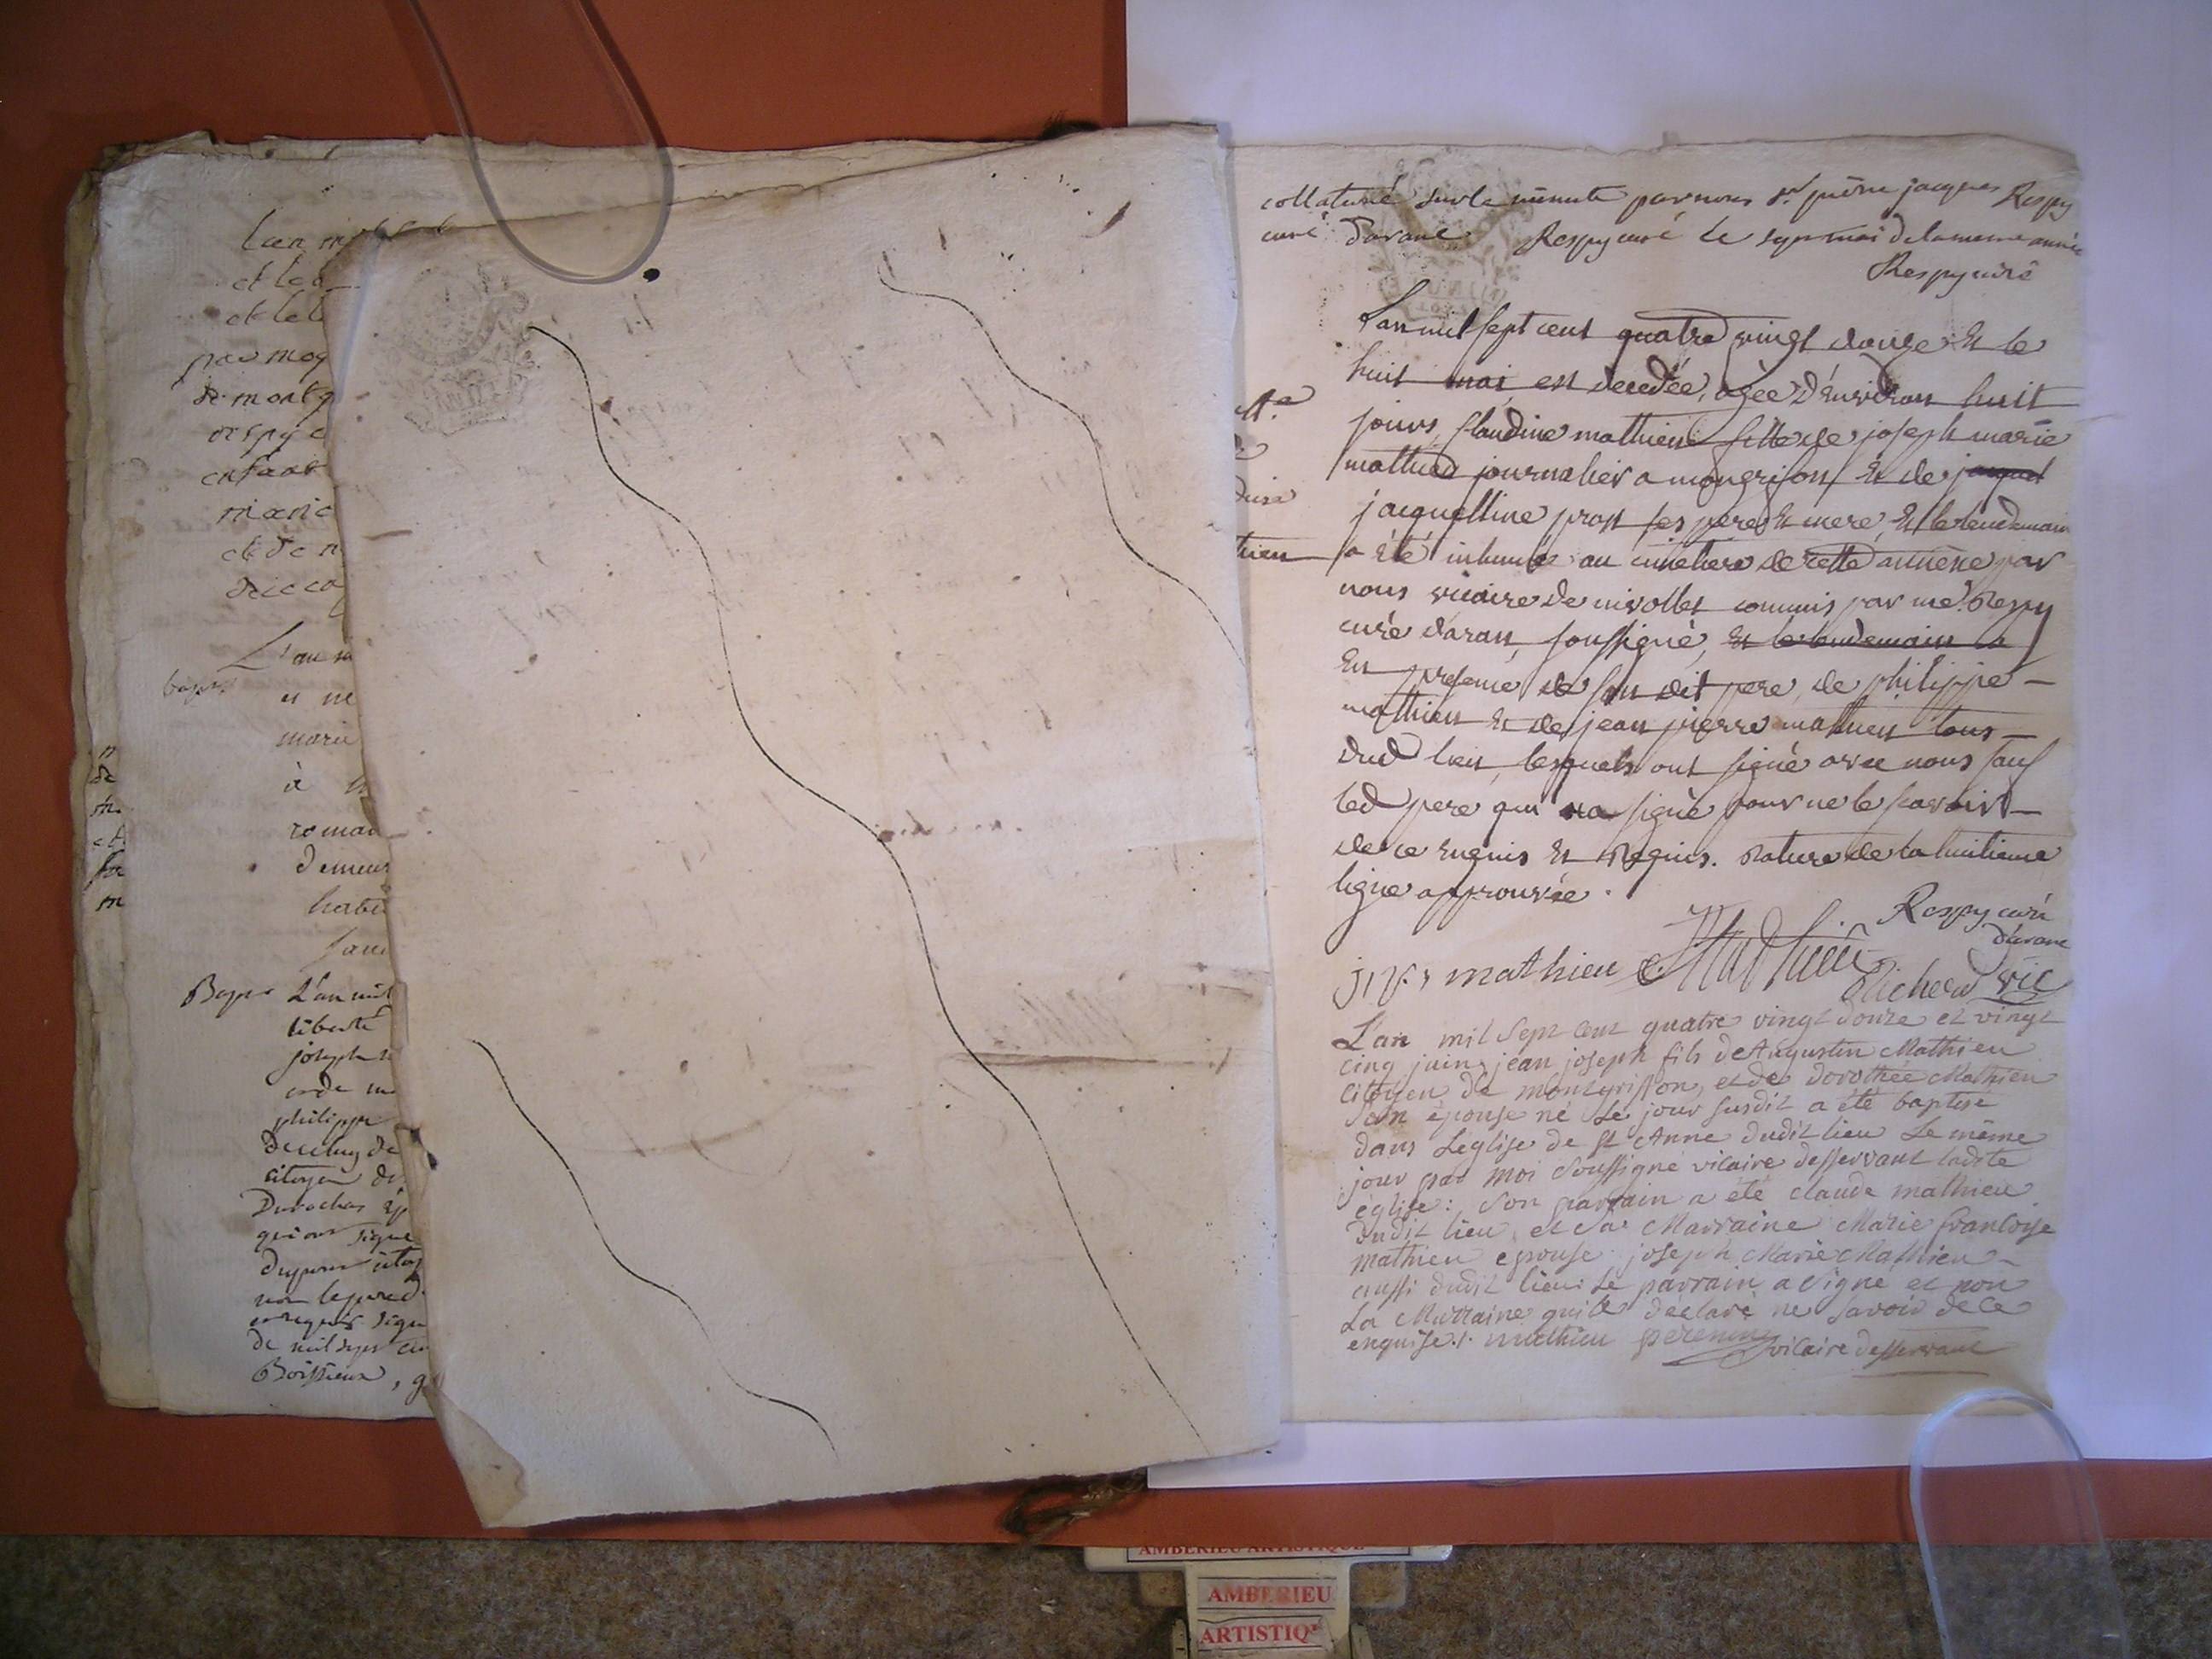 L'an mil
et le
et le
par moy
de montg
respy c
enfant
marie
et de
L'an
bapt
et ne
marie
à
romau
demeur
habit
Bapt L'an mil
liberté
joseph
philippe
de
citoyen de
Durochas ép
qui ont signé
non le pere
enrequis sign
de mil sept cen
Boissieux, g
collationé sur la minute par nous sr pierre jacques Respy
curé d'arane Respy curé le sept mai de la meme année
Respy curé
L'an mil sept cent quatre vingt douze Et le
huit mai est decedée, agée d'environ huit
jours, Claudine mathieu fille de joseph marie
mathieu journalier a mongrifon Et de jaquel
jacquelline prost ses pere Et mere, Et le lendemain
a été inhumée au cimetiere de cette annexe par
nous vicaire de nivollet commis par me. Respy
curé d'aran, soussigné, Et le lendemain a
En presence de son dit pere, de philippe
mathieu Et de jean pierre mathieu tous
dud lieu, lesquels ont signé avec nous sauf
led pere qui na signé pour ne le scavoir
de ce Enquis Et Requis. Rature de la huitieme
ligne approuvée.
Respy curé
d'arane
j. p. mathieu C. Mathieu
Richerd vic
L'an mil sept cent quatre vingt douze et vingt
cinq juin, jean joseph fils de Augustin Mathieu
Citoyen de montgriffon, et de dorothée Mathieu
son épouse né le jour susdit a été baptisé
dans Leglise de St Anne dudit lieu Le même
jour par moi soussigné vicaire desservant ladite
église: son parrain a été claude mathieu
dudit lieu, et sa Marraine Marie françoise
mathieu epouse joseph Marie Mathieu
aussi dudit lieu: Le parrain a signé et non
La Marraine qui a declaré ne savoir de ce
enquise./. mathieu vicaire desservant
AMBERIEU ARTISTIQUE
AMBERIEU
ARTISTIQ